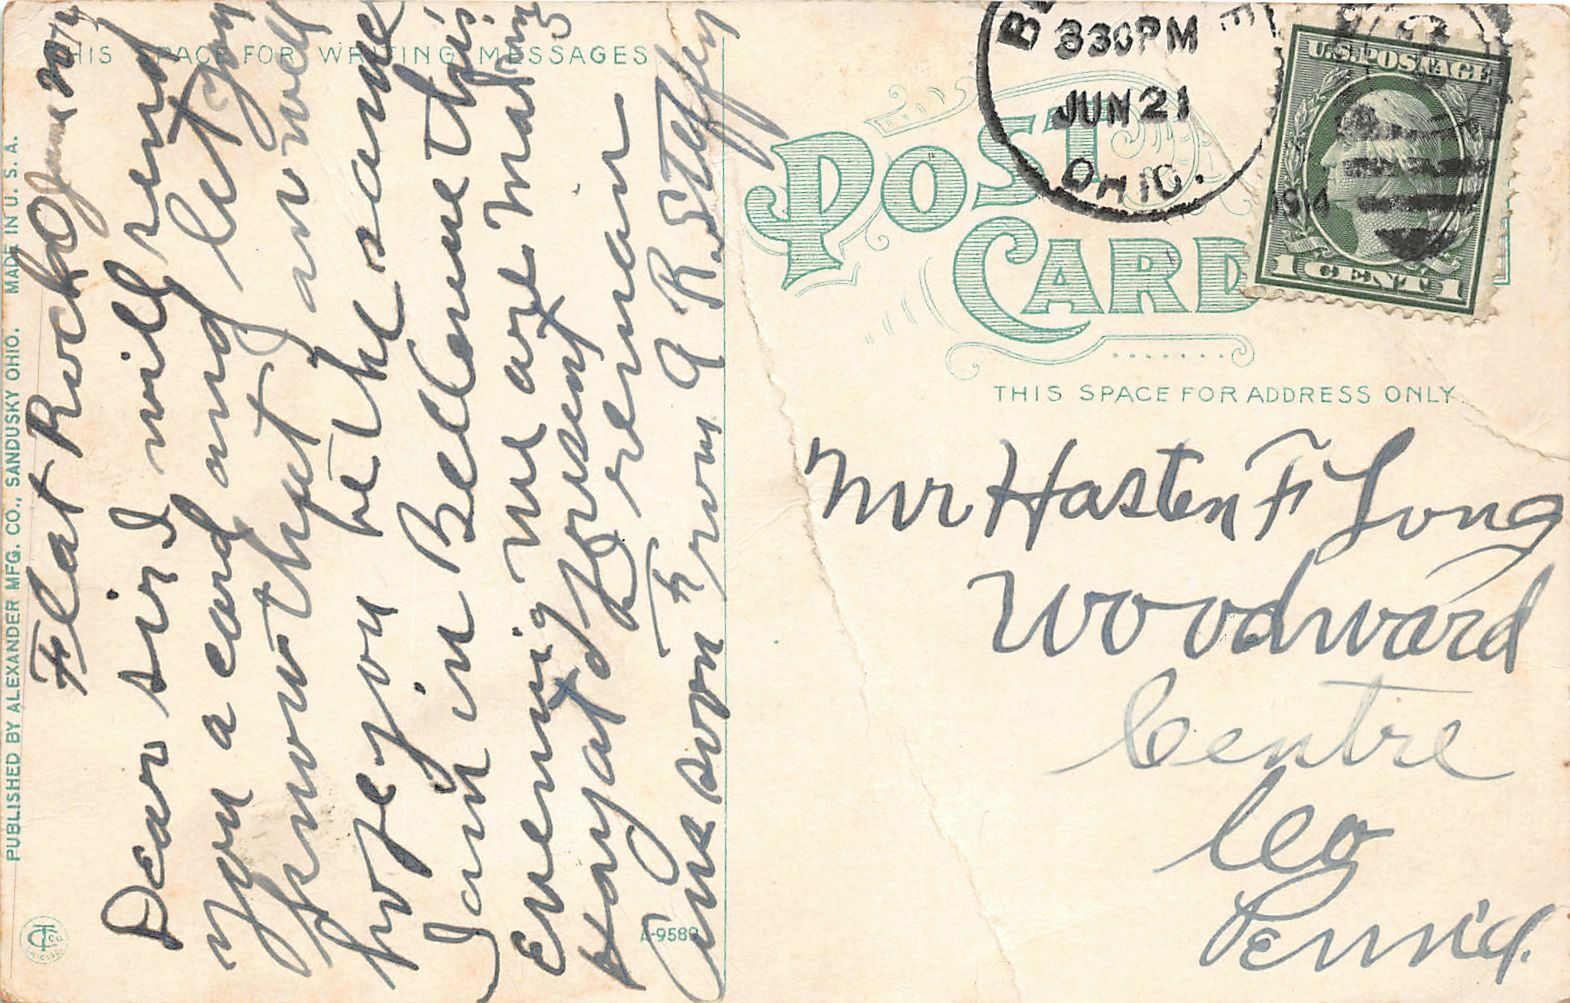 THIS SPACE FOR WRITING MESSAGES
Flat Rock O June 20
Dear sir I will send
you a card and let you
know that am well
hope you be the same
I am in Bellevue this
Evening we are making
Hay at present
Foreman
Ans soon From A R Steffey
PUBLISHED BY ALEXANDER MFG. CO., SANDUSKY OHIO. MADE IN U. S. A.
A-9589
POST CARD
330PM
JUN 21
OHIO.
1914
U.S. POSTAGE
1 CENT 1
THIS SPACE FOR ADDRESS ONLY
Mr Hasten F Long
Woodward
Centre
Co
Penn'a.